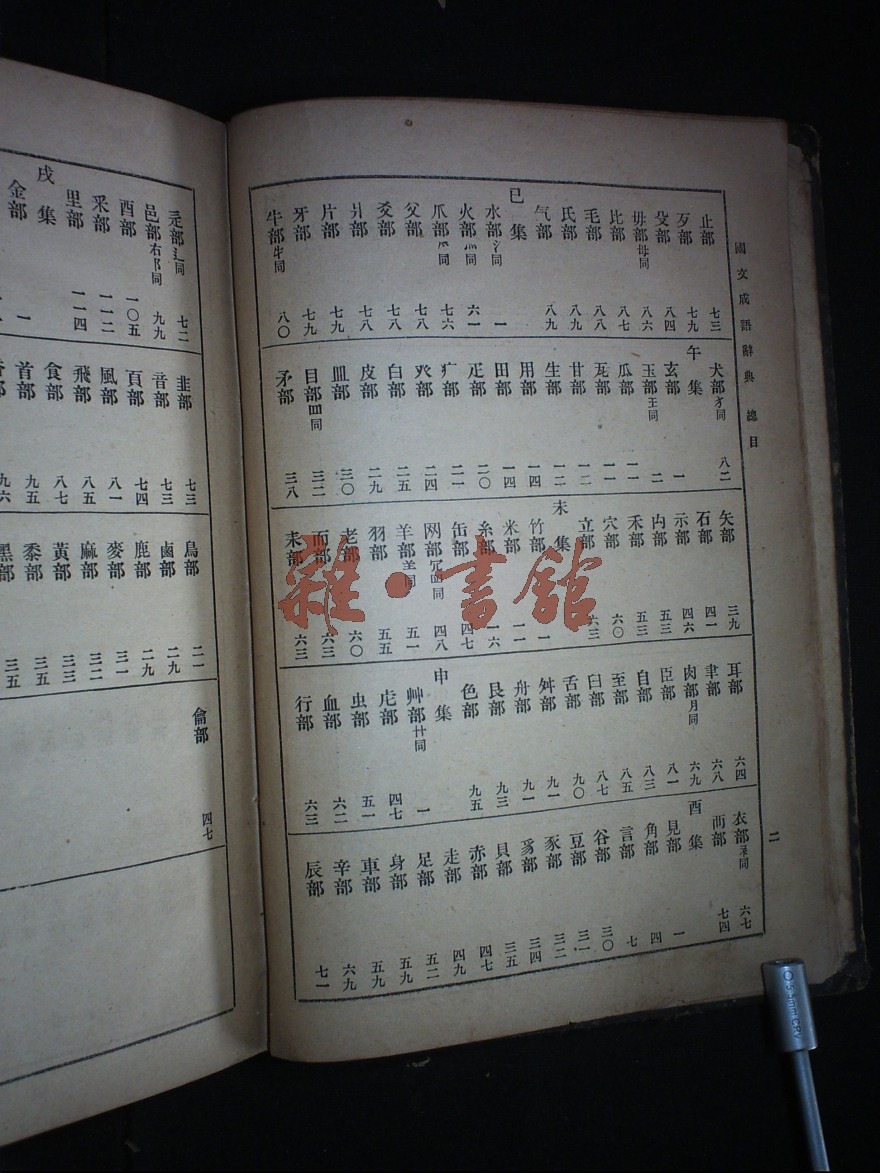 國文成語辭典 總目
二
止部 七三
歹部 七九
殳部 八四
毋部母同 八六
比部 八七
毛部 八八
氏部 八九
气部 八九
巳集
水部氵同 一
火部灬同 六一
爪部爫同 七六
父部 七八
爻部 七八
爿部 七八
片部 七九
牙部 七九
牛部牜同 八〇
犬部犭同 八二
午集
玄部 一
玉部王同 二
瓜部 一一
瓦部 一一
甘部 一二
生部 一二
用部 一四
田部 一四
疋部 二〇
疒部 二一
癶部 二四
白部 二五
皮部 二九
皿部 三〇
目部罒同 三二
矛部 三八
矢部 三九
石部 四一
示部 四六
禸部 五三
禾部 五三
穴部 六〇
立部 六三
未集
竹部 一
米部 一一
糸部 一六
缶部 四七
网部冗罒同 四八
羊部⺷同 五一
羽部 五五
老部 六〇
而部 六三
耒部 六三
耳部 六四
聿部 六八
肉部月同 六九
臣部 八一
自部 八三
至部 八五
臼部 八七
舌部 九〇
舛部 九一
舟部 九一
艮部 九三
色部 九五
申集
艸部艹同 一
虍部 四七
虫部 五一
血部 六二
行部 六三
衣部衤同 六七
襾部 七四
酉集
見部 一
角部 四
言部 七
谷部 三〇
豆部 三一
豕部 三二
豸部 三四
貝部 三五
赤部 四七
走部 四九
足部 五二
身部 五九
車部 五九
辛部 六九
辰部 七一
辵部辶同 七二
邑部右阝同 九九
酉部 一〇五
釆部 一一二
里部 一一四
戌集
金部 一
韭部 七三
音部 七三
頁部 七四
風部 八一
飛部 八五
食部 八七
首部 九五
香部 九六
鳥部 二一
鹵部 二九
鹿部 二九
麥部 三一
麻部 三二
黃部 三三
黍部 三五
黑部 三五
龠部 四七
雜·書館